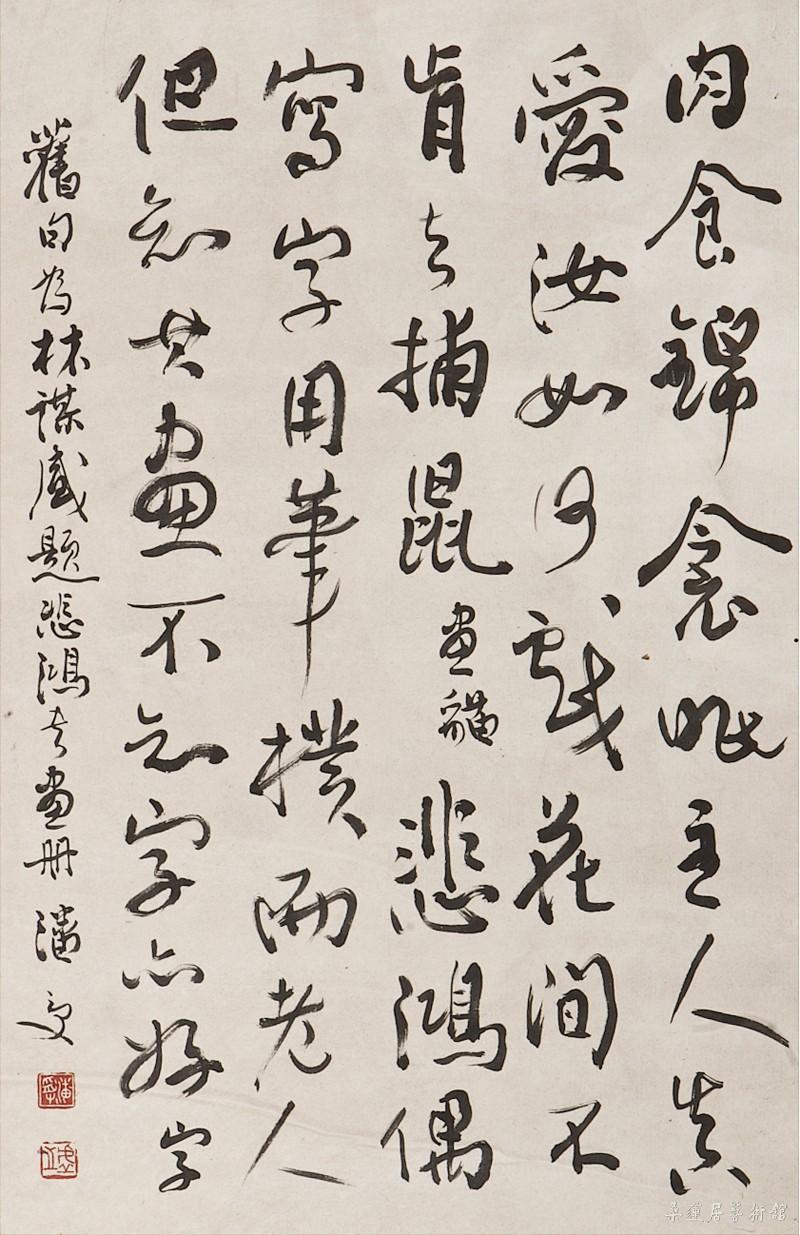 肉食錦衾眠主人真
愛汝如何戲花間不
肯去捕鼠 畫貓 悲鴻偶
寫字用筆樸而老人
但知其畫不知字亦好 字
舊句為林謀盛題悲鴻書畫冊 潘受
桑蓮居藝術館